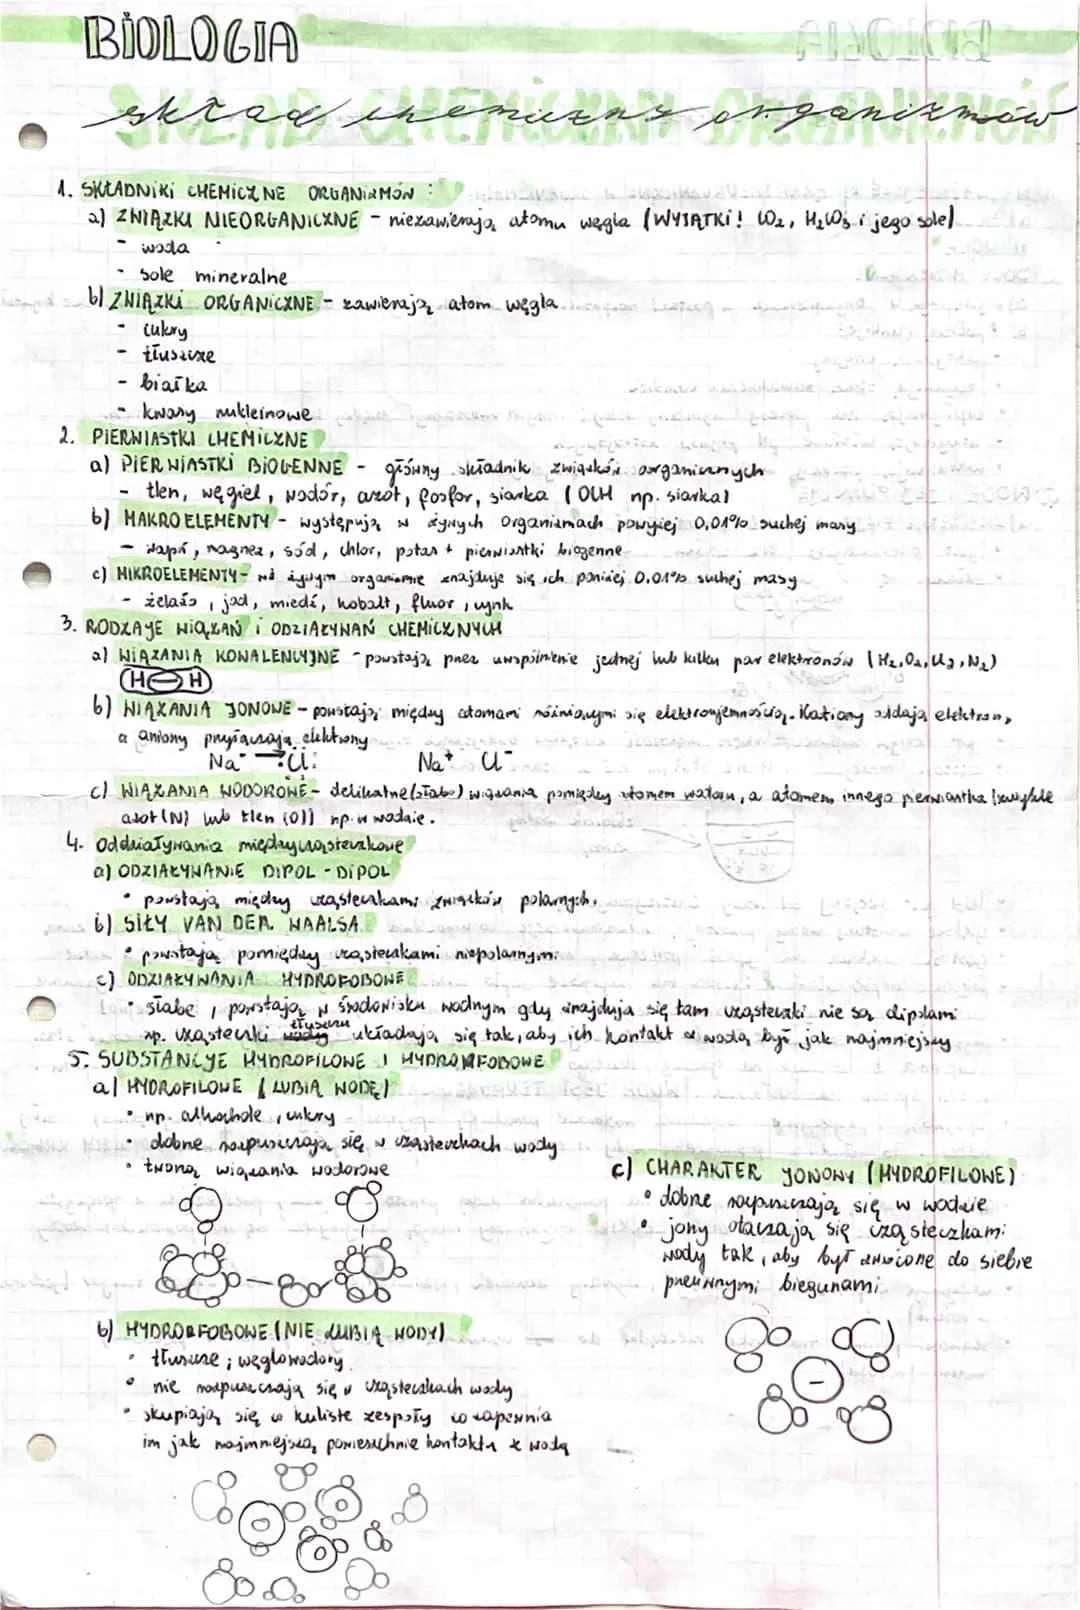 BIOLOGIA
skład chemiczny organizmów
1. SKŁADNIKI CHEMICZNE ORGANIZMÓW :
a) ZWIĄZKI NIEORGANICZNE - niezawierają atomu węgla (WYJĄTKI! CO2, H2CO3 i jego sole)
- woda
- sole mineralne
b) ZWIĄZKI ORGANICZNE - zawierają atom węgla
- cukry
- tłuszcze
- białka
- kwasy nukleinowe
2. PIERWIASTKI CHEMICZNE
a) PIERWIASTKI BIOGENNE - główny składnik związków organicznych
- tlen, węgiel, wodór, azot, fosfor, siarka (OCH np. siarka)
b) MAKROELEMENTY - występują w żywych organizmach powyżej 0,01% suchej masy
- wapń, magnez, sód, chlor, potas + pierwiastki biogenne
c) MIKROELEMENTY - w żywym organizmie znajduje się ich poniżej 0.01% suchej masy
- żelazo, jod, miedź, kobalt, fluor, cynk
3. RODZAJE WIĄZAŃ i ODZIAŁYWAŃ CHEMICZNYCH
a) WIĄZANIA KOWALENCYJNE - powstają przez uwspólnienie jednej lub kilku par elektronów (H2, O2, Cl2, N2)
H H
b) WIĄZANIA JONOWE - powstają między atomami różniącymi się elektroujemnością. Kationy oddają elektron,
a aniony przyłączają elektrony
Na Cl Na+ Cl-
c) WIĄZANIA WODOROWE - delikatne (słabe) wiązania pomiędzy atomem wodoru, a atomem innego pierwiastka (zwykle
azot (N) lub tlen (O)) np. w wodzie.
4. Oddziaływania międzycząsteczkowe
a) ODZIAŁYWANIE DIPOL - DIPOL
• powstają między cząsteczkami związków polarnych.
b) SIŁY VAN DER WAALSA
• powstają pomiędzy cząsteczkami niepolarnymi
c) ODZIAŁYWANIA HYDROFOBOWE
• słabe, powstają w środowisku wodnym gdy znajdują się tam cząsteczki nie są dipolami
np. cząsteczki tłuszczu układają się tak, aby ich kontakt z wodą był jak najmniejszy
5. SUBSTANCJE HYDROFILOWE I HYDROFOBOWE
a) HYDROFILOWE (LUBIĄ WODĘ)
• np. alkohole, cukry
• dobrze rozpuszczają się w cząsteczkach wody
• tworzą wiązania wodorowe
b) HYDROFOBOWE (NIE LUBIĄ WODY)
• tłuszcze; węglowodory
• nie rozpuszczają się w cząsteczkach wody
• skupiają się w kuliste zespoły co zapewnia
im jak najmniejszą powierzchnię kontaktu z wodą
c) CHARAKTER JONOWY (HYDROFILOWE)
• dobrze rozpuszczają się w wodzie
• jony otaczają się cząsteczkami
wody tak, aby był zwrócone do siebie
przeciwnymi biegunami
-